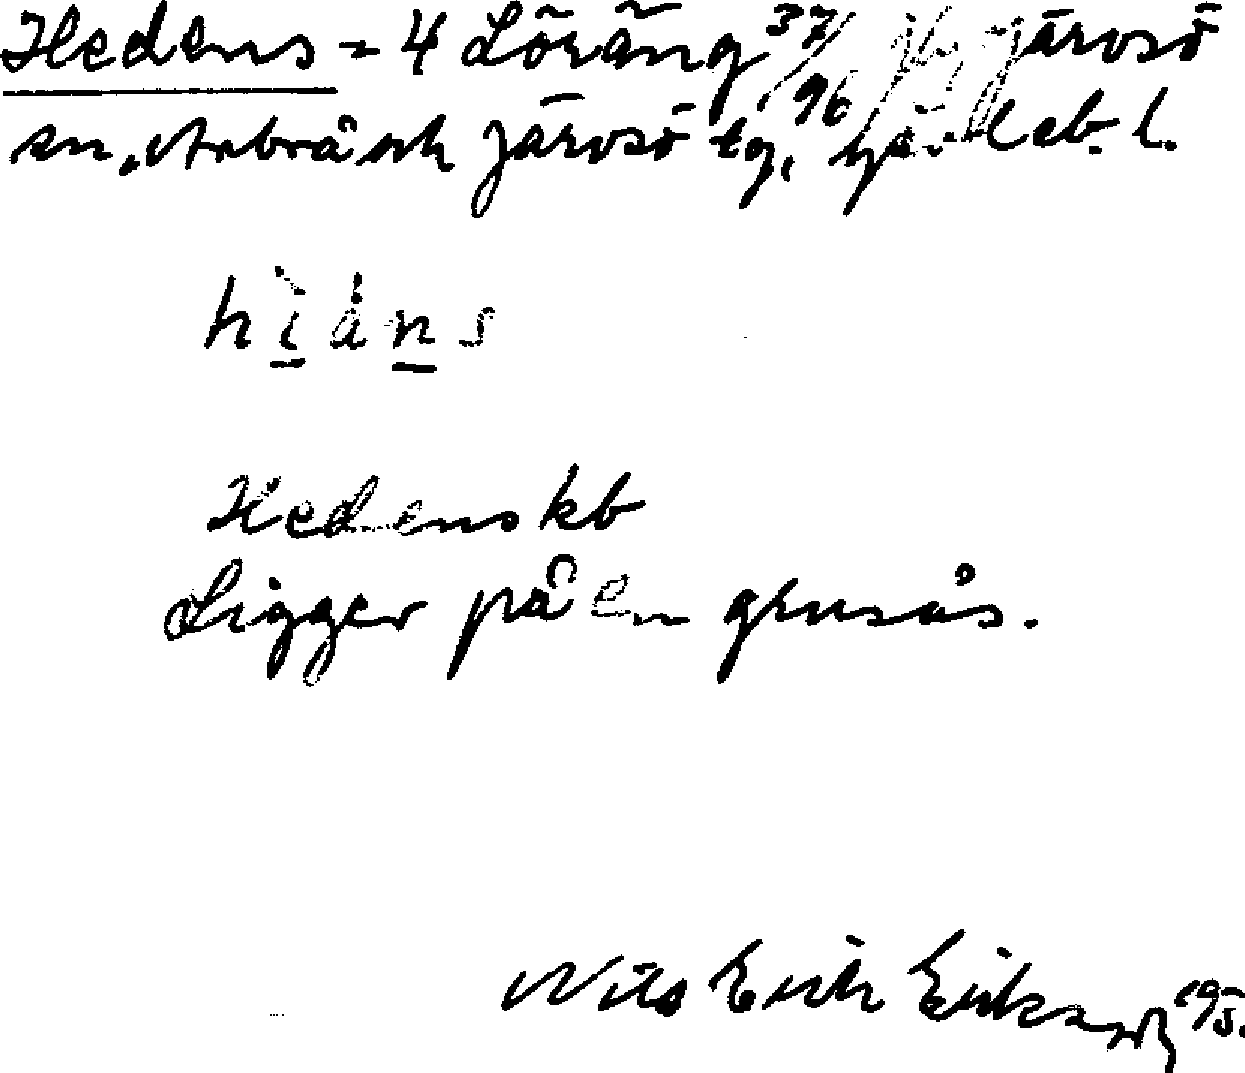 Hedens = 4 Löräng 37/96 Järvsö
sn, Arbrå och Järvsö tg, Gävleb. l.
hìåns
Hedens kb
Ligger på en grusås.
Nils Erik Eriksson 195.